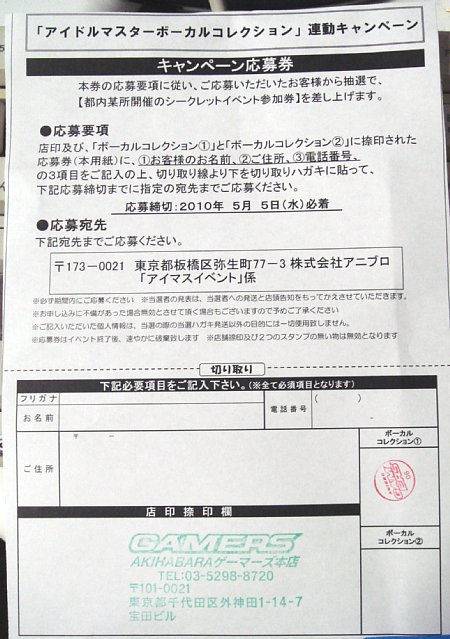 「アイドルマスターボーカルコレクション」連動キャンペーン
キャンペーン応募券
本券の応募要項に従い、ご応募いただいたお客様から抽選で、
【都内某所開催のシークレットイベント参加券】を差し上げます。
●応募要項
店印及び、「ボーカルコレクション①」と「ボーカルコレクション②」に捺印された
応募券(本用紙)に、①お客様のお名前、②ご住所、③電話番号、
の3項目をご記入の上、切り取り線より下を切り取りハガキに貼って、
下記応募締切までに指定の宛先までご応募ください。
応募締切:2010年 5月 5日(水)必着
●応募宛先
下記宛先までご応募ください。
〒173-0021 東京都板橋区弥生町77-3 株式会社アニブロ
「アイマスイベント」係
※必ず期間内にご応募ください ※当選者の発表は、当選者への発送と店頭告知をもってかえさせていただきます。
※お申し込みに不備があった場合無効とさせて頂く場合もございますので予めご了承ください
※ご記入いただいた個人情報は、当選の際の当選ハガキ発送以外の目的には一切使用致しません。
※応募券はイベント終了後、速やかに破棄致します ※店舗捺印及び2つのスタンプの無い物は無効となります
切り取り
下記必要項目をご記入下さい。(※全て必須項目となります)
フリガナ
お名前
電話番号
( )
-
〒 -
ご住所
ボーカル
コレクション①
店印捺印欄
ボーカル
コレクション②
GAMERS
AKIHABARAゲーマーズ本店
TEL:03-5298-8720
〒101-0021
東京都千代田区外神田1-14-7
宝田ビル